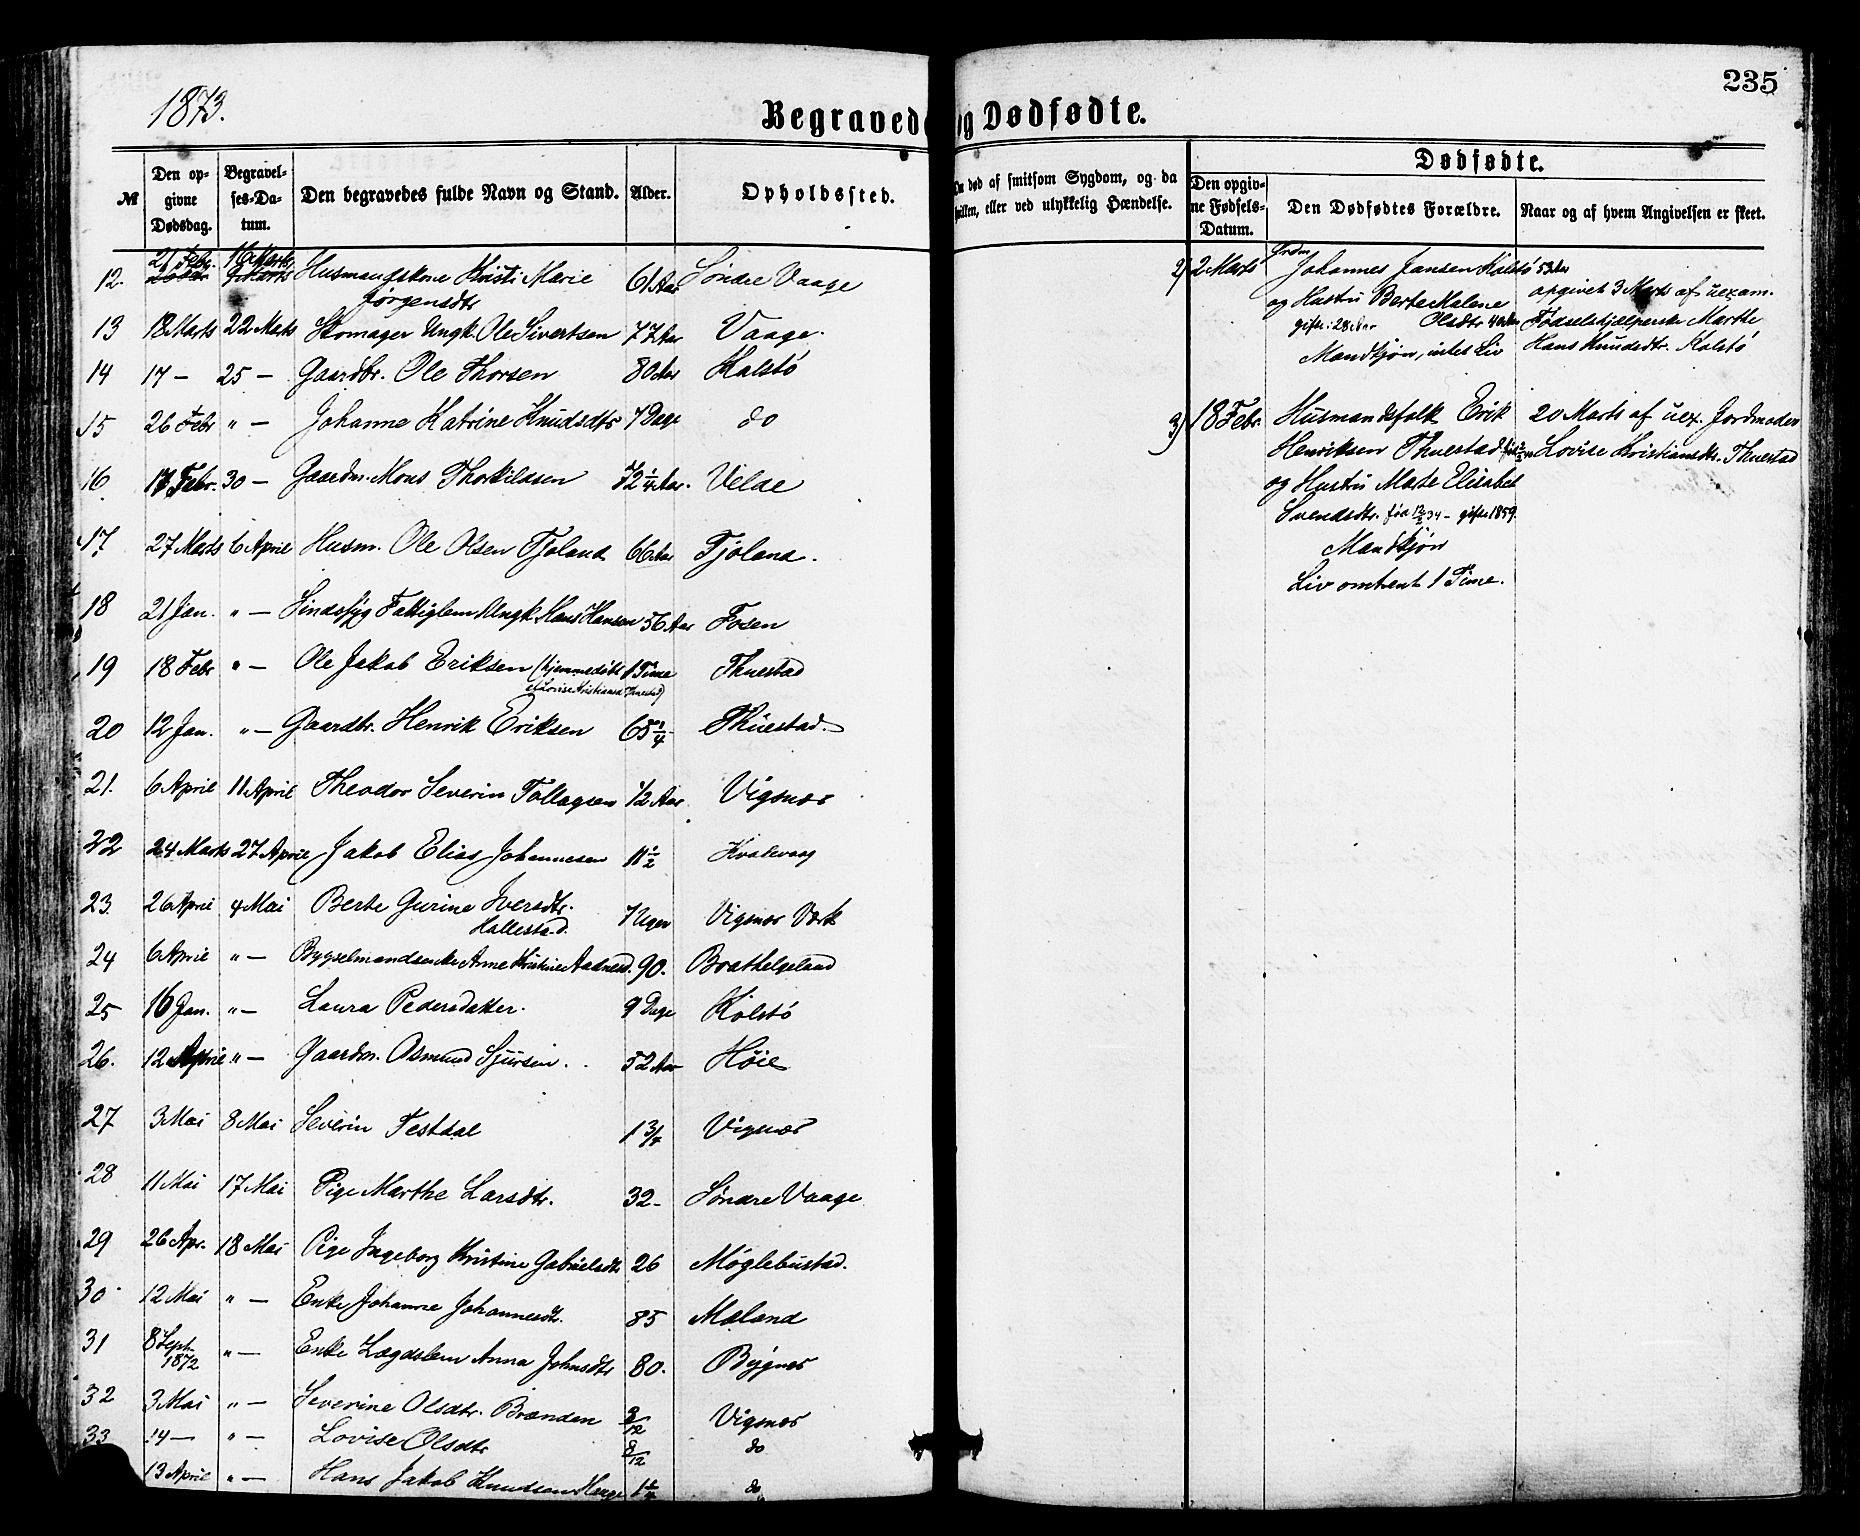 1873.
235
Begravede og Dødfødte.
№
Den opgivne Dødsdag.
Begravelses-Datum.
Den begravedes fulde Navn og Stand.
Alder.
Opholdssted.
død af smitsom Sygdom, og da
eller ved ulykkelig Hændelse.
Dødfødte.
Den opgivne Fødsels-Datum.
Den Dødfødtes Forældre.
Naar og af hvem Angivelsen er skeet.
12. 21 Febr. 16 Marts Husmandskone Kristi Marie 61 Aar Søndre Vaage
Jørgensdtr
13 18 Marts 22 Marts Skomager Ungk. Ole Sivertsen 77 Aar Vaage.
14 17 — 25 — Gaardbr. Ole Thorsen 80 Aar Kalstø
15 26 Febr " — Johanne Katrine Knudsdtr 7 Dage do
16 17 Febr. 30 — Gaardm. Mons Thorkildsen 72 1/4 Aar. Velde
17. 27 Marts 6 April Husm. Ole Olsen Tjoland 66 Aar Tjoland.
18 21 Jan. " — Sindssyg Fattiglem Ungk. Hans Hansen 56 Aar Fosen
19 18 Febr " — Ole Jakob Eriksen (hjemmedøbt 1 Time Thuestad
af Lovise Kristiansd Thuestad)
20 12 Jan. " — Gaardbr. Henrik Eriksen 65 1/4 Thuestad.
21. 6 April 11 April Theodor Severin Tollagsen 1/2 Aar Vigsnæs
22 24 Marts 27 April Jakob Elias Johannesen 11 1/2 Kvalevaag
23. 26 April 4 Mai Berte Gurine Iversdtr. 7 Uger Vigsnæs Værk
Hallestad.
24 6 April " — Bygselmandsenke Anne Kristine Aadnesd. 90. Brathelgeland
25 16 Jan. " — Laura Pedersdatter. 9 Dage Kolstø
26. 12 April " — Gaardm. Osmund Sjursen. 52 Aar Høie
27 3 Mai 8 Mai Severin Testdal 1 3/4 Vigsnæs
28 11 Mai 17 Mai Pige Marthe Larsdtr. 32 - Søndre Vaage
29 26 Apr. 18 Mai Pige Ingeborg Kristine Gabrielsdtr 26 Møglebustad.
30 12 Mai " — Enke Johanne Johannesdt. 85 Mæland
31 8 Sept. 1872 " — Enke Lægdslem Anna Johnsdtr 80. Bygnæs
32 3 Mai " — Severine Olsdtr. Brænden 8/12 Vigsnæs
33 14 — " — Lovise Olsdtr 8/12 do
13 April " — Hans Jakob Knudsen Hauge do
2) 2 Marts Grdm Johannes Jansen Kolstø 53 Aar
og Hustru Berte Malene
gifte: 28 Aar Olsdtr
Mandkjøn, intet Liv
opgivet 3 Marts af uexam.
Fødselshjælperske Marthe
Hans Knudsdtr. Kolstø
3) 18 Febr. Husmandsfolk Erik
Henriksen Thuestad
og Hustru Marte Elisabet
Svendsdtr. fød 12/2 34 — gifte 1859.
Mandkjøn
Liv omtrent 1 Time.
20 Marts af uex. Jordmoder
Lovise Kristiansdtr. Thuestad